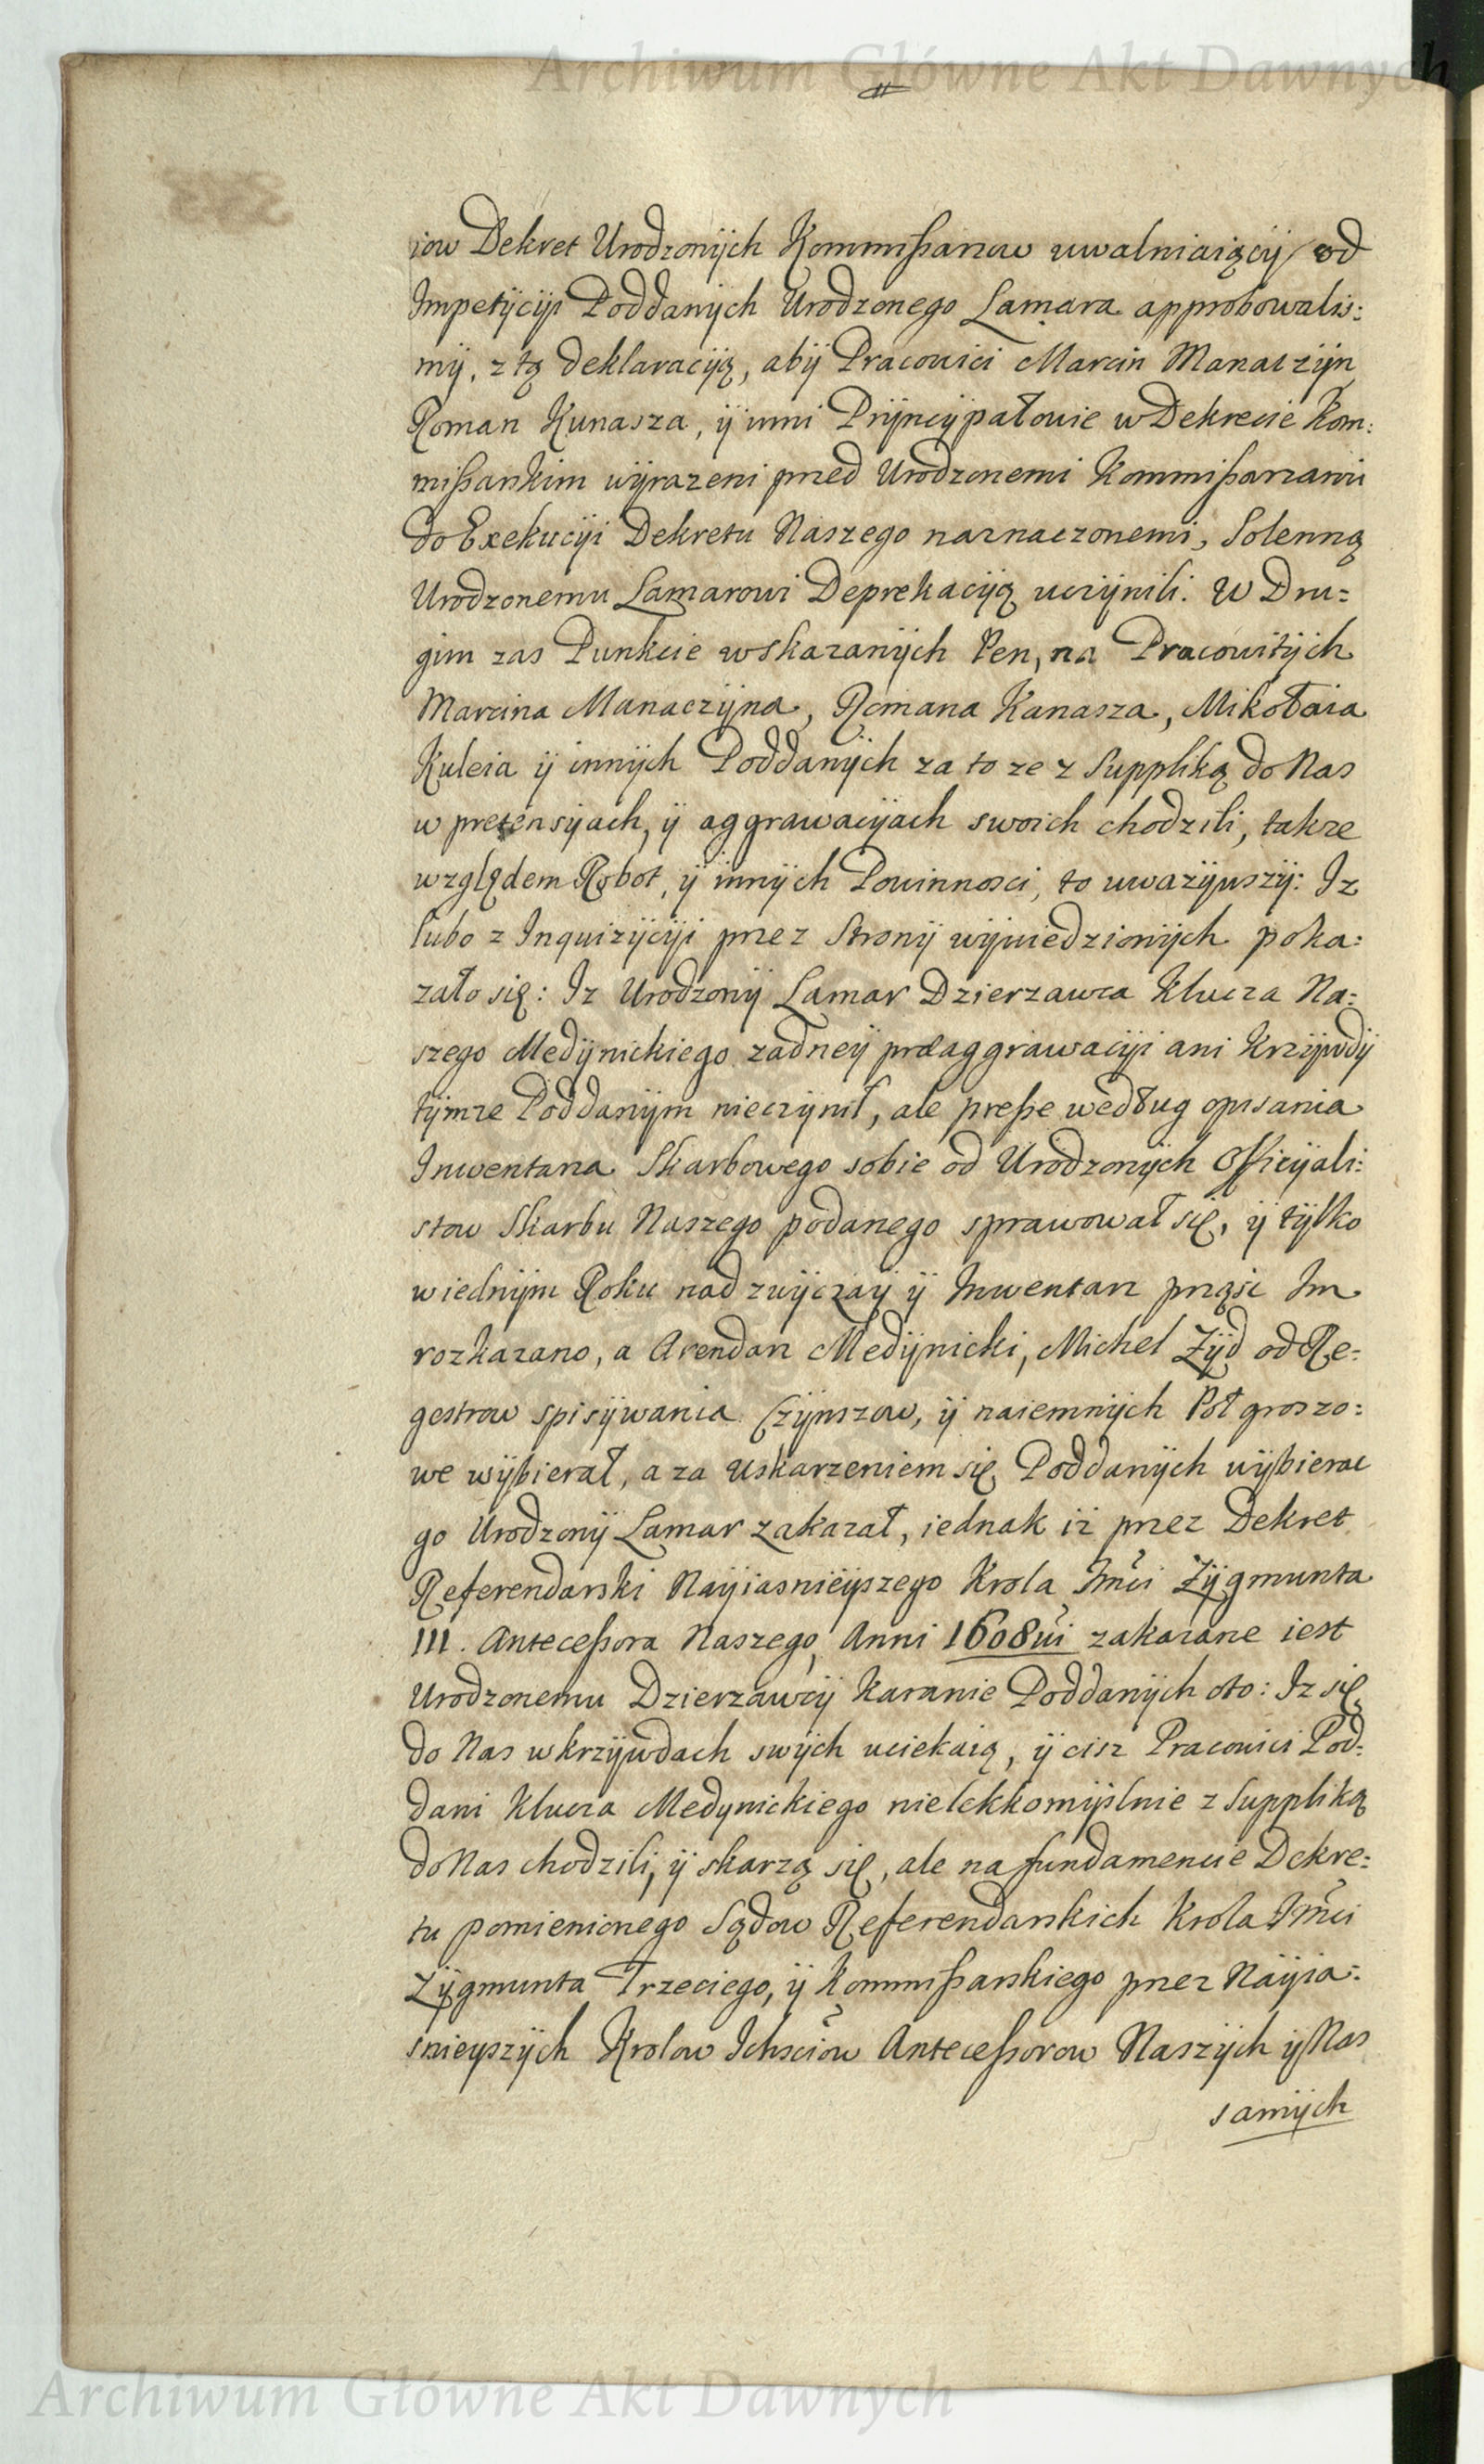 Archiwum Główne Akt Dawnych
iow Dekret Urodzonÿch Kommißarzow uwalniaiącÿ od
Impetÿcÿi Poddanÿch Urodzonego Lamara approbowalis:
mÿ, z tą deklaracÿią, abÿ Pracowici Marcin Manaczÿn
Roman Kunasza, ÿ inni Prÿncÿpałowie w Dekrecie Kom:
mißarskim wÿrazeni przed Urodzonemi Kommißarzami
do Exekucÿi Dekretu Naszego naznaczonemi, Solenną
Urodzonemu Lamarowi Deprekacÿią uczÿnili. W Dru=
gim zas Punkcie wskazanÿch Pen, na Pracowitÿch
Marcina Manaczÿna, Romana Kanasza, Mikołaia
Kuleia ÿ innÿch Poddanÿch za to ze z Suppliką do Nas
w pretensÿach, ÿ aggrawacÿach swoich chodzili, takze
względem Robot, ÿ innÿch Powinnosci, to uwazÿwszÿ: Iz
lubo z Inquizÿcÿi przez Stronÿ wÿwiedzionÿch poka:
zało się: Iz Urodzonÿ Lamar Dzierzawca Klucza Na:
szego Medÿnickiego zadneÿ præaggrawacÿi ani Krzÿwdÿ
tÿmze Poddanÿm nieczÿnił, ale preße według opisania
Inwentarza Skarbowego sobie od Urodzonÿch Officÿali:
stow Skarbu Naszego podanego sprawował się, ÿ tÿlko
w iednÿm Roku nad zwÿczaÿ ÿ Inwentarz prząsc Im
rozkazano, a Arendarz Medÿnicki, Michel Zÿd od Re=
gestrow spisÿwania Czÿnszow, ÿ naiemnÿch Poł groszo:
we wÿbierał, a za uskarzeniem się Poddanÿch wÿbierac
go Urodzonÿ Lamar zakazał, iednak iż przez Dekret
Referendarski Naÿiasnieÿszego Krola Jmći Zÿgmunta
III. Antecessora Naszego, Anni 1608vi zakazane iest
Urodzonemu Dzierzawcÿ karanie Poddanÿch oto: Iz się
do Nas w krzÿwdach swÿch uciekaią, ÿ cisz Pracowici Pod:
dani Klucza Medynickiego nielekkomÿslnie z Suppliką
do Nas chodzili, ÿ skarzą się, ale na fundamencie Dekre:
tu pomienionego Sądow Referendarskich Krola Jmći
Zÿgmunta Trzeciego, ÿ Kommißarskiego przez Naÿia:
snieyszÿch Krolow Ichsciow Antecessorow Naszÿch ÿ Nas
samÿch
Archiwum Główne Akt Dawnych